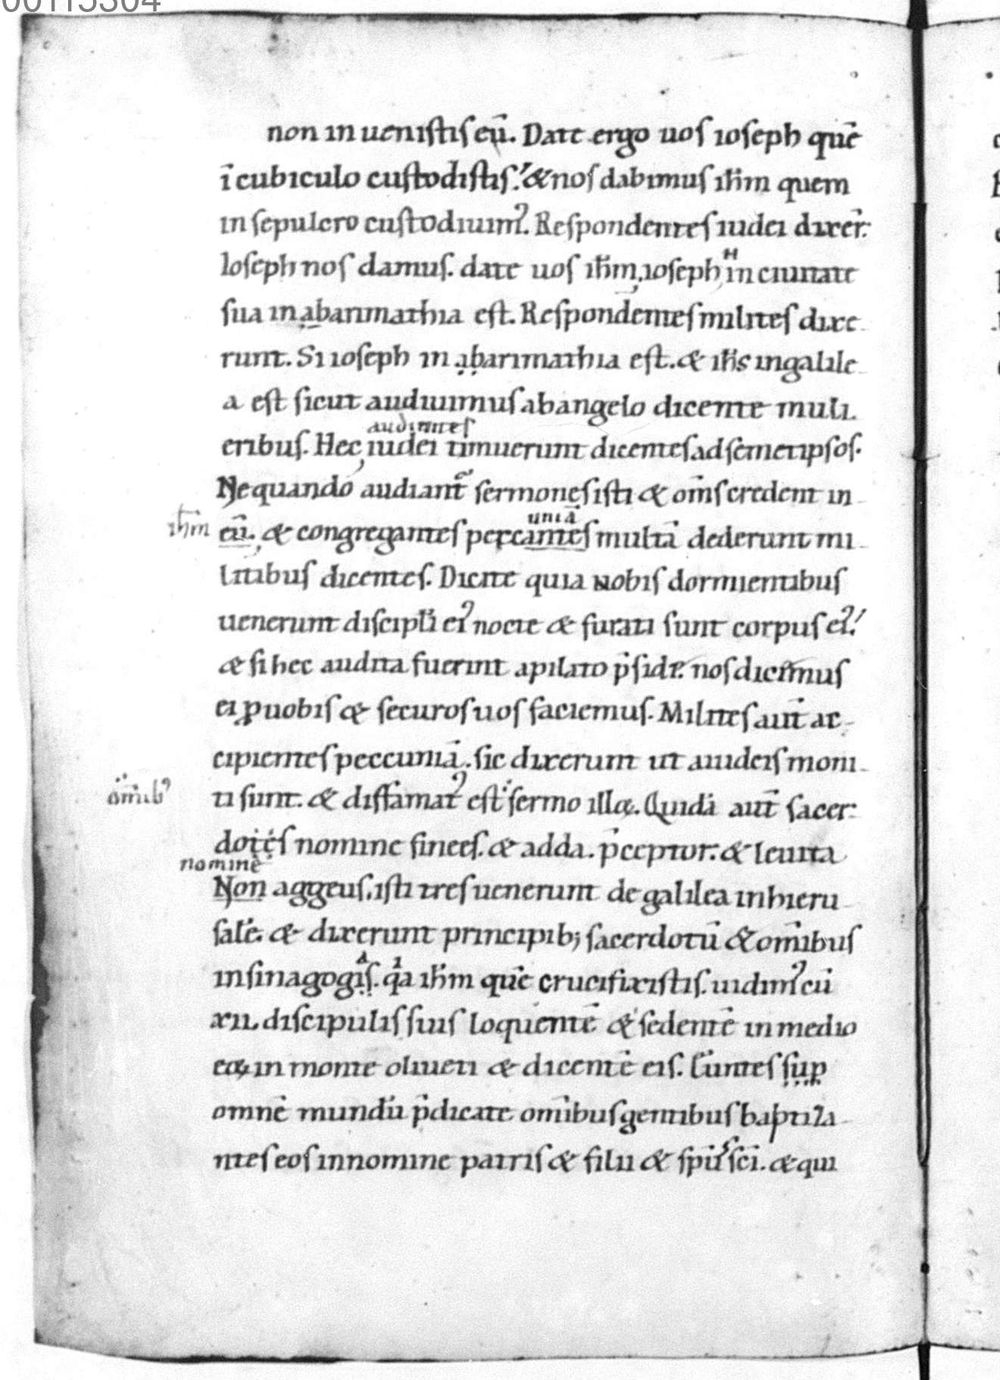 00115304
non in uenistis eū. Date ergo uos ioseph quē
ī cubiculo custodistis. & nos dabimus ih̄m quem
in sepulcro custodiuim᾿. Respondentes iudei dixer̄.
Ioseph nos damus. date uos ih̄m, ioseph ᴴ in ciuitate
sua in abarimathia est. Respondentes milites dixe
runt. Si ioseph in abarimathia est. & ih̄s in galile
a est sicut audiuimus ab angelo dicente muli
audientes
eribus. Hec, iudei timuerunt dicentes ad semetipsos.
Ne quando audiant᷑ sermones isti & om̄s credent in
ih̄m eū. & congregantes percantes multā dederunt mi
uniā
litibus dicentes. Dicite quia nobis dormientibus
uenerunt discipli̅ ei᾿ nocte & furati sunt corpus ei᾿.
& si hec audita fuerint a pilato p̄side. nos dicimus
ei ꝓ uobis & securos uos faciemus. Milites aut̄ ac
cipientes peccuniā. sic dixerunt ut a iudeis moni
om̄ib᾿ ti sunt. & diffamat᾿ est sermo illoꝝ. Quidā aut̄ sacer
dotes nomine finees. & adda. p̄ceptor. & leuita
nominē
Non aggeus. isti tres uenerunt de galilea in hieru
salē. & dixerunt principib; sacerdotū & om̄ibus
in sinagogis. qa ih̄m quē crucifixistis. uidim᾿ cū
xii. discipulis suis loquentē & sedentē in medio
eoꝝ in monte oliueti & dicentē eis. Euntes sup
omnē mundū p̄dicate omībus gentibus baptiza
ntes eos in nomine patris & filii & sp̄us sc̄i. & qui